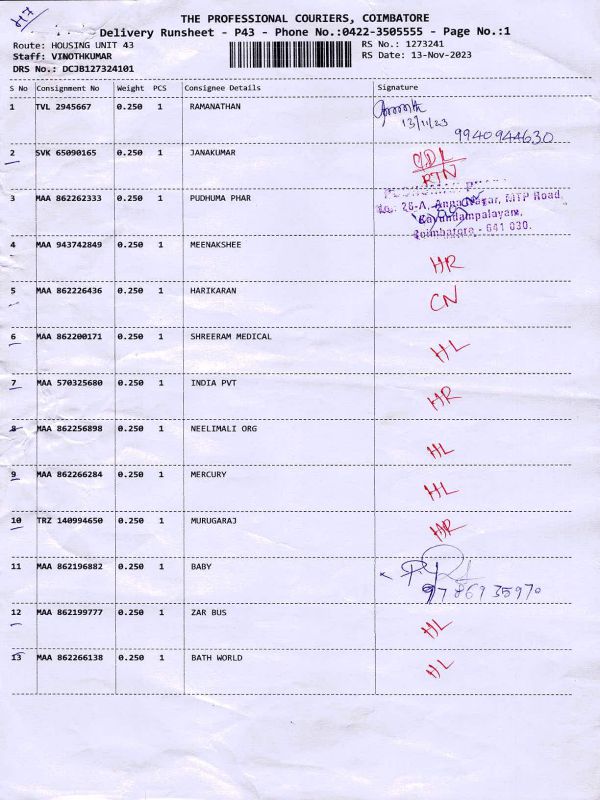 THE PROFESSIONAL COURIERS, COIMBATORE
Delivery Runsheet - P43 - Phone No.:0422-3505555 - Page No.:1
Route: HOUSING UNIT 43
RS No.: 1273241
Staff: VINOTHKUMAR
RS Date: 13-Nov-2023
DRS No.: DCJB127324101
S No Consignment No Weight PCS Consignee Details Signature
1 TVL 2945667 0.250 1 RAMANATHAN
13/11/23
9940944630
2 SVK 65090165 0.250 1 JANAKUMAR
RTN
3 MAA 862262333 0.250 1 PUDHUMA PHAR
No: 26-A, Anga Nagar, MTP Road,
Kavundampalayam,
Coimbatore - 641 030.
4 MAA 943742849 0.250 1 MEENAKSHEE HR
5 MAA 862226436 0.250 1 HARIKARAN CN
6 MAA 862200171 0.250 1 SHREERAM MEDICAL HL
7 MAA 570325680 0.250 1 INDIA PVT HR
8 MAA 862256898 0.250 1 NEELIMALI ORG HL
9 MAA 862266284 0.250 1 MERCURY HL
10 TRZ 140994650 0.250 1 MURUGARAJ HR
11 MAA 862196882 0.250 1 BABY
9786935970
12 MAA 862199777 0.250 1 ZAR BUS HL
13 MAA 862266138 0.250 1 BATH WORLD HL